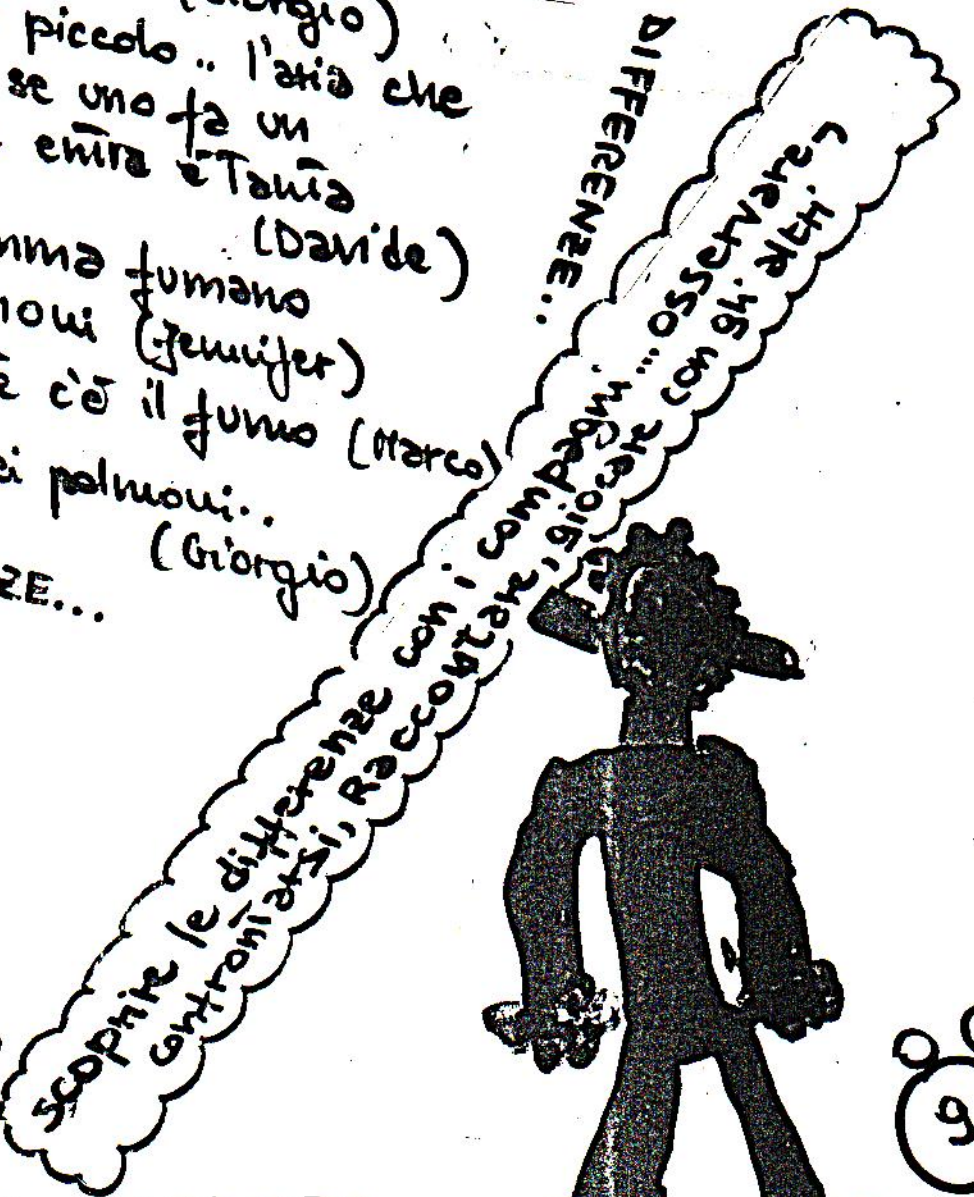 (Giorgio)
piccolo.. l'aria che
se uno fa un
entra è Tanta
(Davide)
fumano
(Jennifer)
c'è il fumo (Marco)
palmoni..
(Giorgio)
DIFFERENZE..
scoprire le differenze con i compagni... osservare,
confrontarsi, Raccontare, giocare con gli altri
9